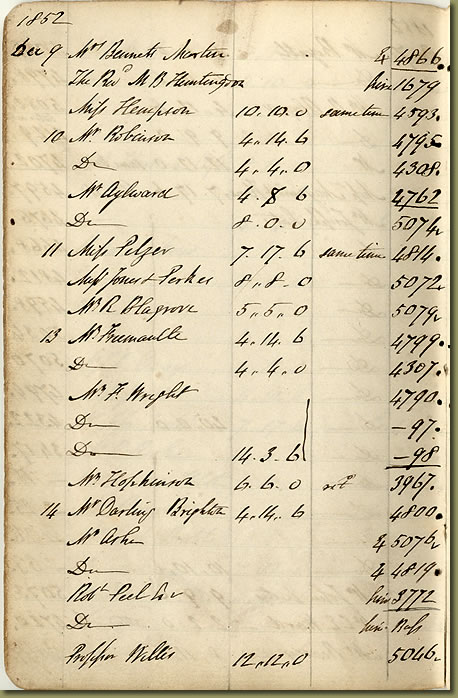 1852
Dec 9 Mrs Bennett Martin & 4866.
The Revd M B Huntingdon hire 1679
Miss Hempson 10.10.0 same time 4593.
10 Mr Robinson 4.14.6 4795
Do 4.4.0 4308.
Mr Aylward 4.8 6 4762
Do 8.0.0 5074
11 Miss Pelzer 7.17.6 same time 4814.
Miss Jones & Perkes 8.8.0 5072
Mr R Blagrove 5.5.0 5079
13 Mr Fremantle 4.14.6 4799.
Do 4.4.0 4307.
Mr F. Wright 4790.
Do -97.
Do 14.3.6 -98
Mr Hopkinson 6.6.0 3967.
14 Mr Darling Brighton 4.14.6 4800.
Mr Ashe & 5076
Do & 4819.
Robt Peel hire 3772
Do hire Bass
Professor Wilkes 12.12.0 5046.